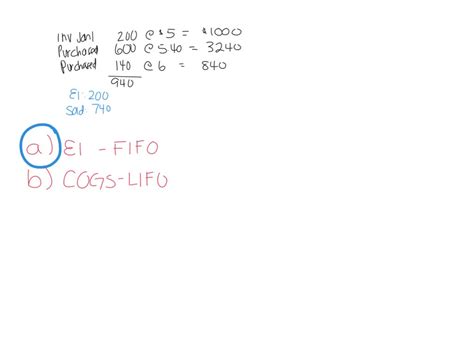 Inv Jan 1 200 @ $5 = $1000
Purchased 600 @ 5.40 = 3240
Purchased 140 @ 6 = 840
940
EI: 200
Sold: 740
a) EI - FIFO
b) COGS-LIFO